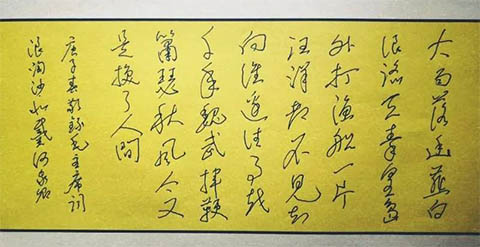 大雨落幽燕白
浪滔天秦皇岛
外打渔船一片
汪洋都不见知
向谁边往事越
千年魏武挥鞭
箫瑟秋风今又
是换了人间
庚子春敬录毛主席词
浪淘沙北戴河